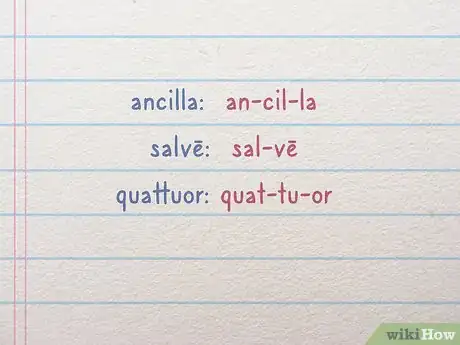 ancilla: an-cil-la
salvē: sal-vē
quattuor: quat-tu-or
wikiHow